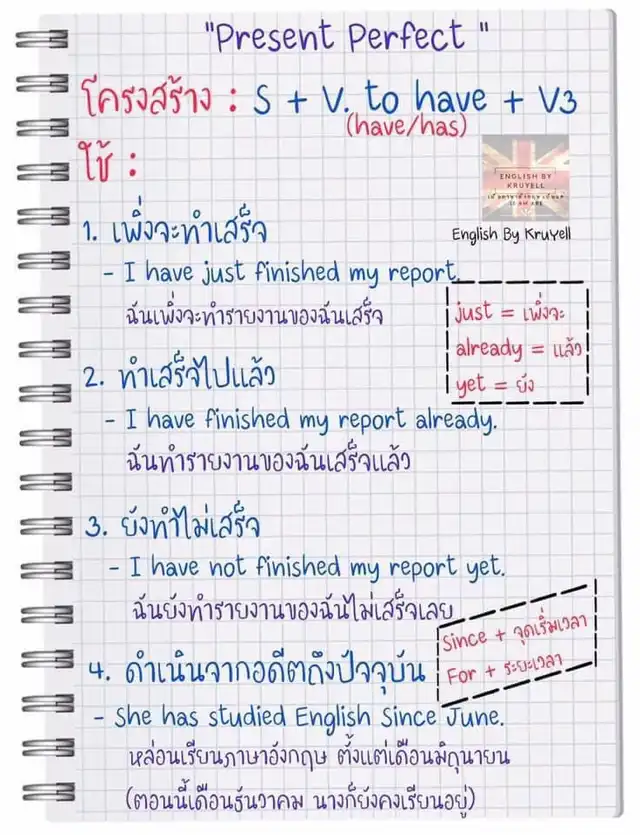 "Present Perfect "
โครงสร้าง : S + V. to have + V3
(have/has)
ใช้ :
ENGLISH BY
KRUYELL
IS AM ARE
English By KruYell
1. เพิ่งจะทำเสร็จ
- I have just finished my report.
ฉันเพิ่งจะทำรายงานของฉันเสร็จ
just = เพิ่งจะ
already = แล้ว
yet = ยัง
2. ทำเสร็จไปแล้ว
- I have finished my report already.
ฉันทำรายงานของฉันเสร็จแล้ว
3. ยังทำไม่เสร็จ
- I have not finished my report yet.
ฉันยังทำรายงานของฉันไม่เสร็จเลย
Since + จุดเริ่มเวลา
For + ระยะเวลา
4. ดำเนินจากอดีตถึงปัจจุบัน
- She has studied English Since June.
หล่อนเรียนภาษาอังกฤษ ตั้งแต่เดือนมิถุนายน
(ตอนนี้เดือนธันวาคม นางก็ยังคงเรียนอยู่)